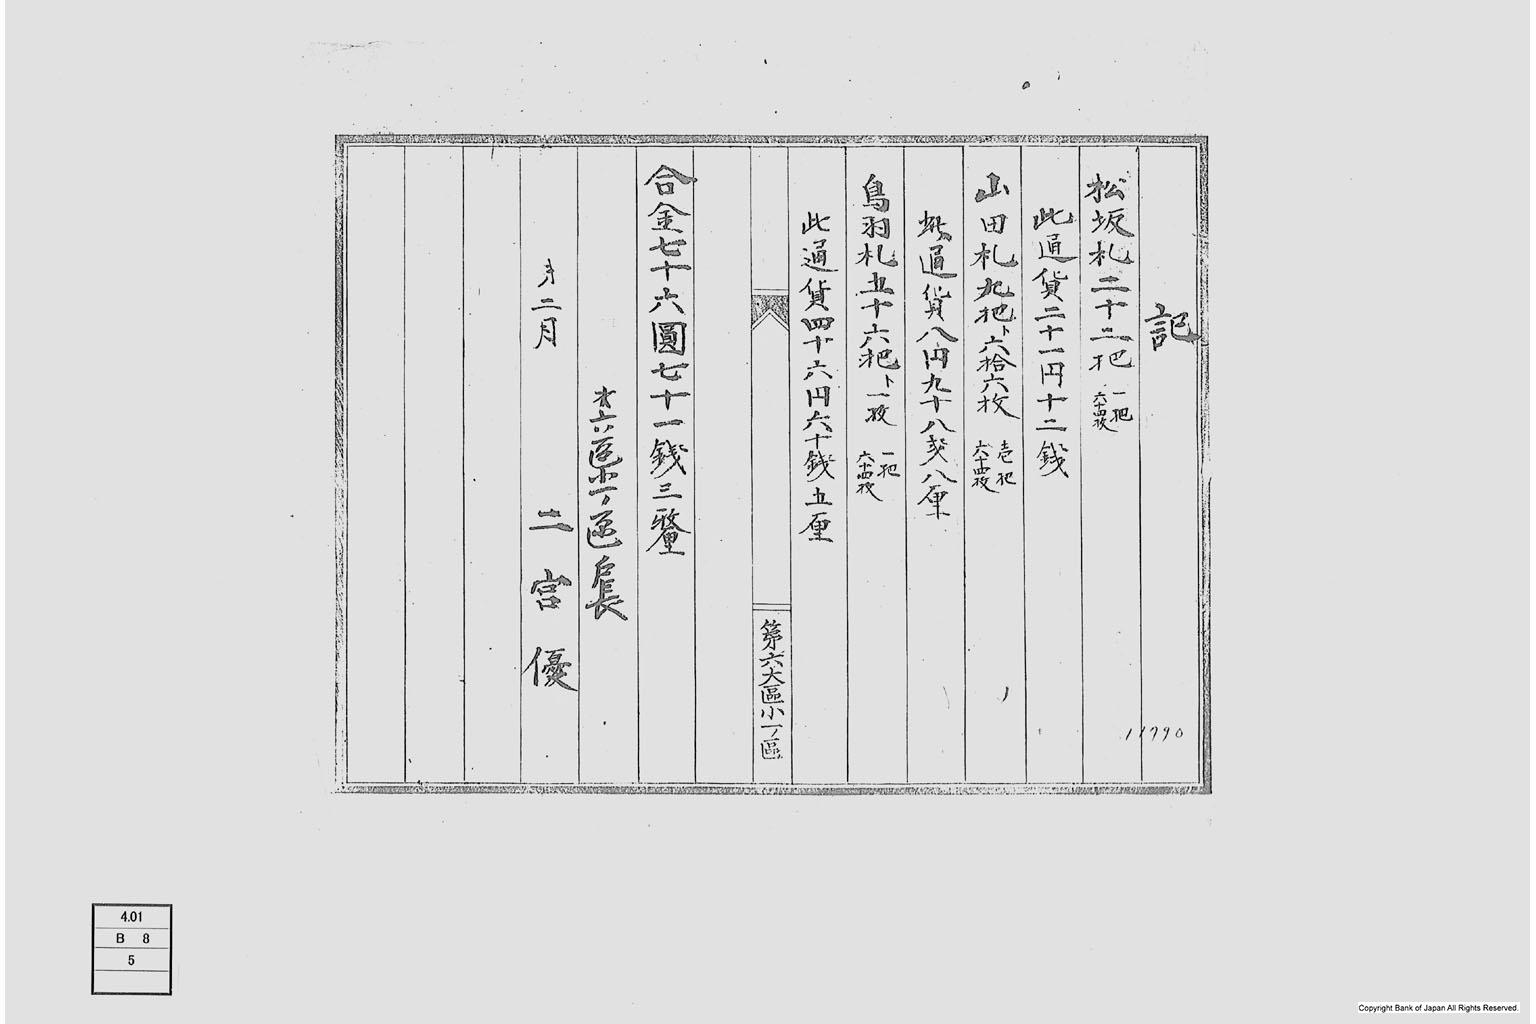 記
松坂札二十二把 一把六十四枚
此通貨二十一円十二銭
山田札九把ト六拾六枚 壱把六十四枚
此通貨八円九十八銭八厘
鳥羽札五十六把ト一枚 一把六十四枚
此通貨四十六円六十銭五厘
第六大區小一ノ區
合金七十六圓七十一銭三釐
才六区小一ノ区戸長
二月 二宮優
11790
4.01
B 8
5
Copyright Bank of Japan All Rights Reserved.